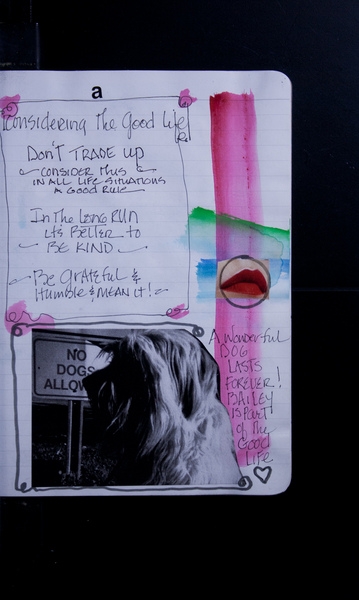 a
Considering the Good Life
Don't TRADE up
CONSIDER this
IN ALL LIFE SITUATIONS
A GOOD RULE
In the Long RUN
its BetteR to
BE KIND
Be GRAteful &
Humble & MEAN IT!
NO
DOGS
ALLOW
A WondeRful
DOG
LASTS
FOREVER!
BAILEY
IS PART
of the
Good
LIFE